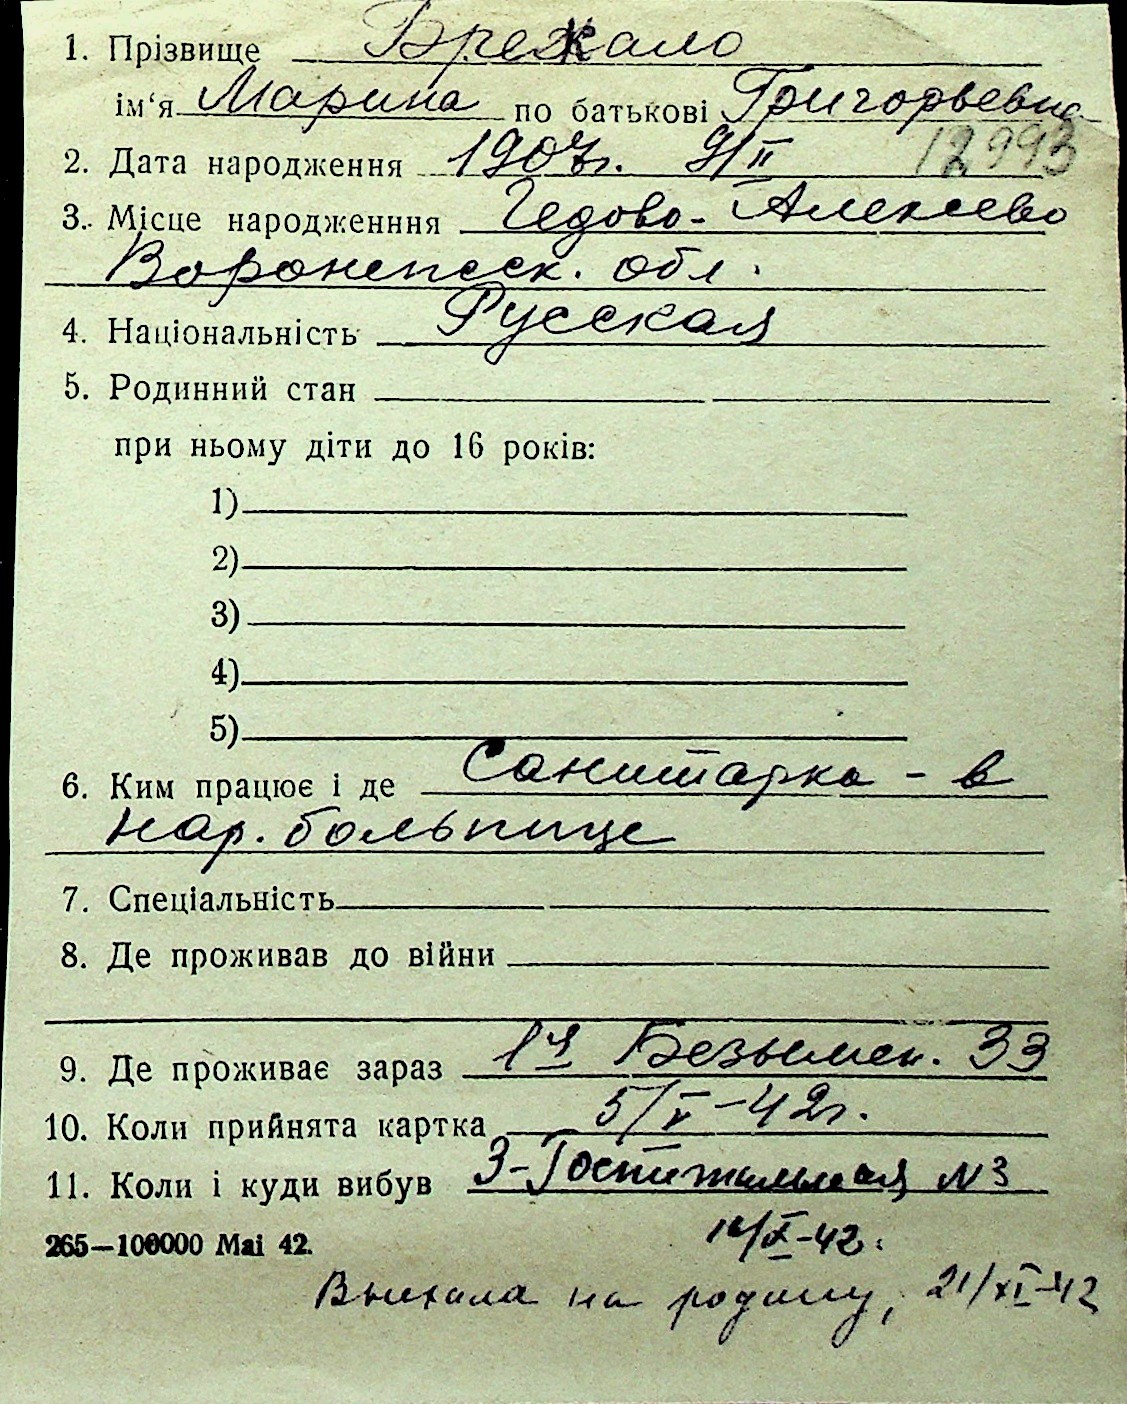 1. Прізвище Брежало
ім‘я Марина по батькові Григорьевна
12993
2. Дата народження 1907г. 9/II
3. Місце народженння Чедово-Алексеево
Воронежск. обл.
4. Національність Русская
5. Родинний стан
при ньому діти до 16 років:
1)
2)
3)
4)
5)
6. Ким працює і де Санитарка - в
нар. больнице
7. Спеціальність
8. Де проживав до війни
9. Де проживає зараз 1я Безымен. 33
10. Коли прийнята картка 5/V-42г.
11. Коли і куди вибув 3-Госпитальная N3
/X-42.
265—100000 Mai 42.
Выехала на родину, 21/XI-42